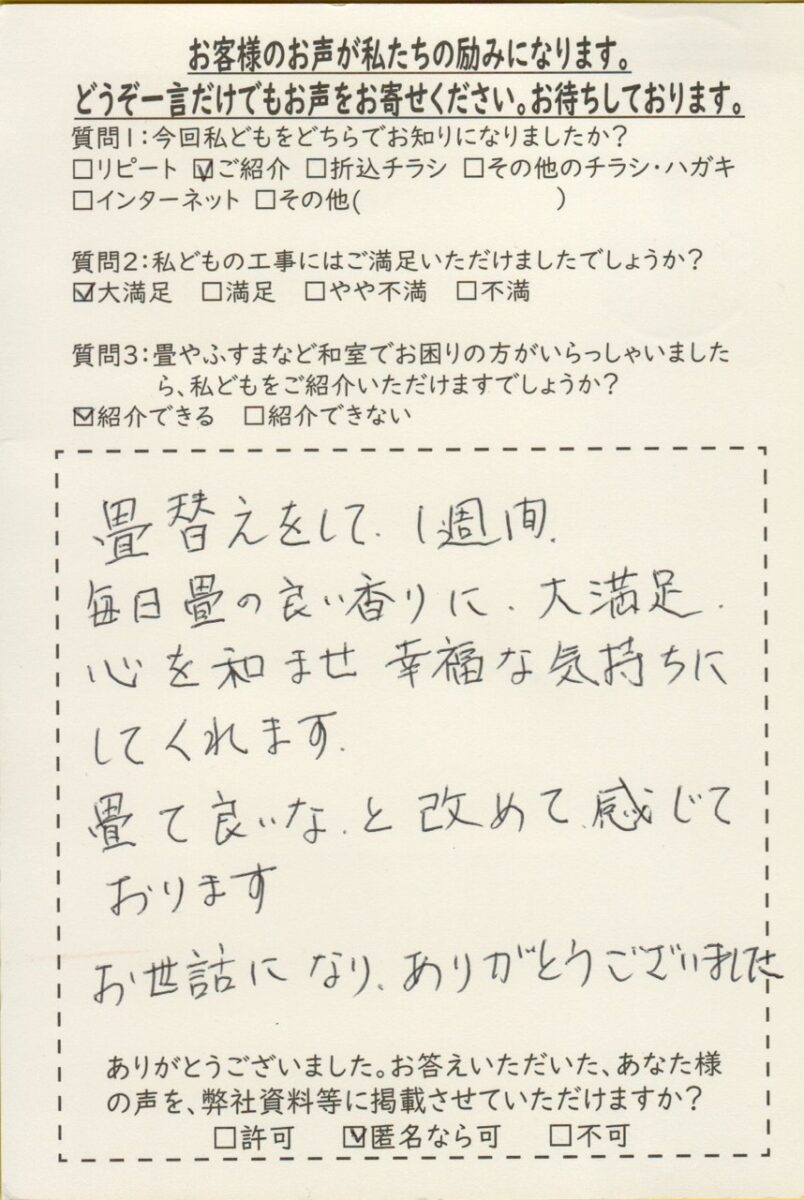 お客様のお声が私たちの励みになります。
どうぞ一言だけでもお声をお寄せください。お待ちしております。
質問1:今回私どもをどちらでお知りになりましたか?
□リピート ☑ご紹介 □折込チラシ □その他のチラシ・ハガキ
□インターネット □その他( )
質問2:私どもの工事にはご満足いただけましたでしょうか?
☑大満足 □満足 □やや不満 □不満
質問3:畳やふすまなど和室でお困りの方がいらっしゃいました
ら、私どもをご紹介いただけますでしょうか?
☑紹介できる □紹介できない
畳替えをして、1週間、
毎日畳の良い香りに、大満足、
心を和ませ幸福な気持ちに
してくれます。
畳て良いな、と改めて、感じて
おります
お世話になり、ありがとうございました
ありがとうございました。お答えいただいた、あなた様
の声を、弊社資料等に掲載させていただけますか?
□許可 ☑匿名なら可 □不可